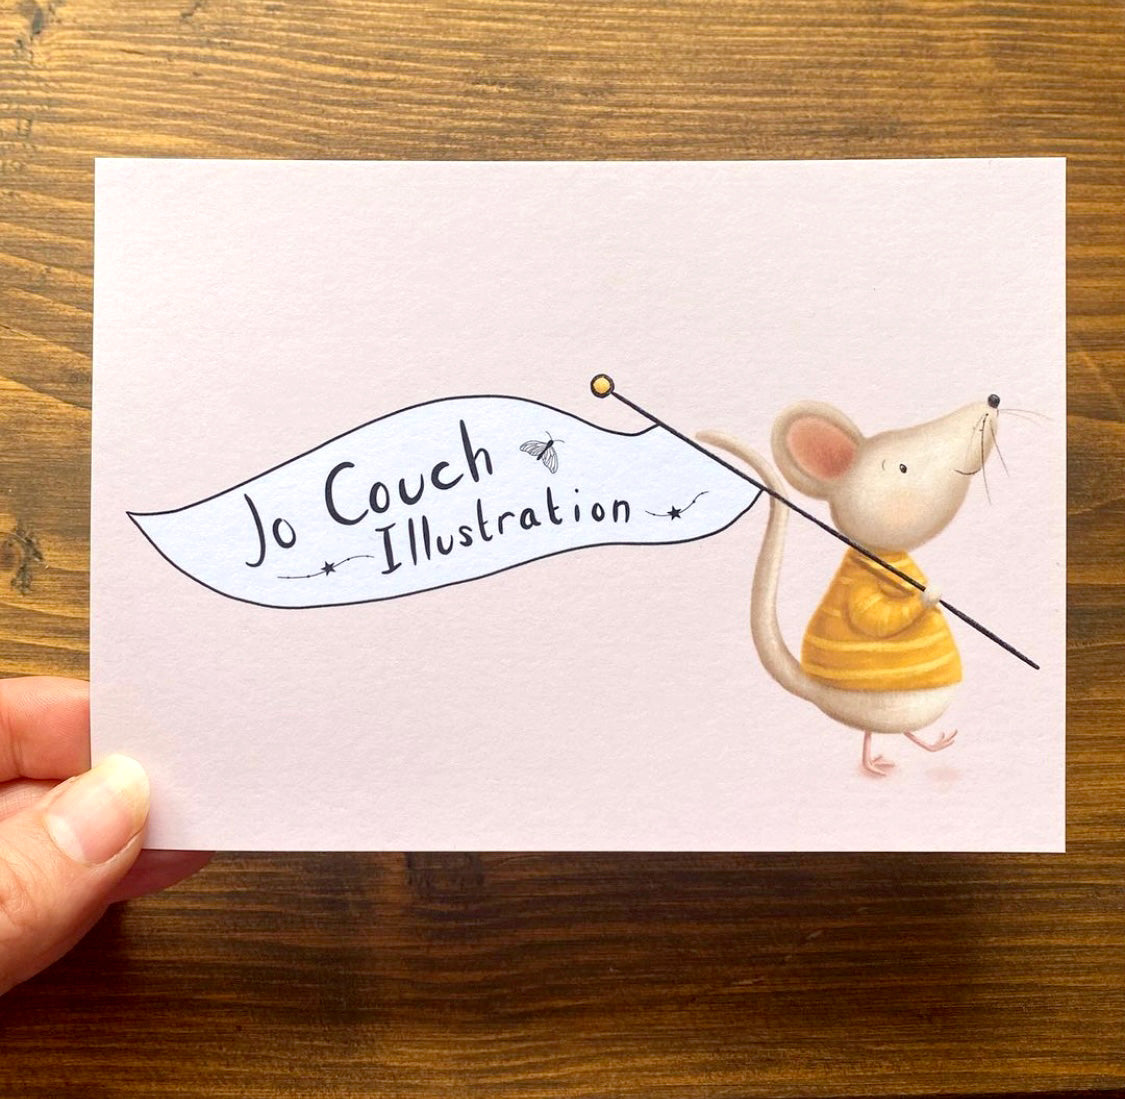 Jo Couch
Illustration